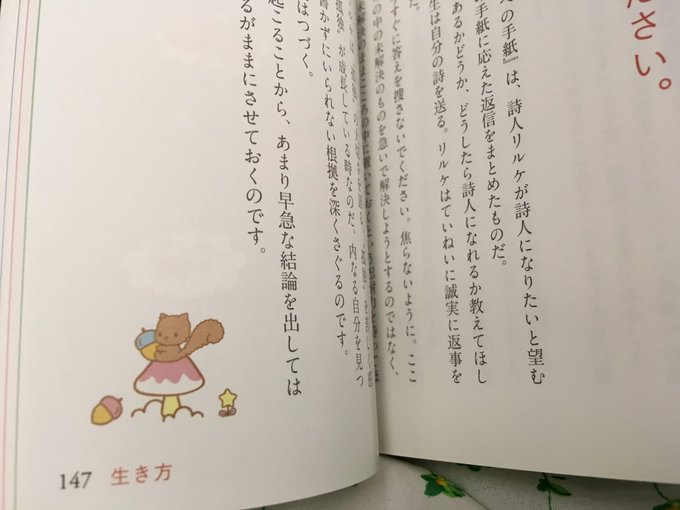 ださい。
の手紙』は、詩人リルケが詩人になりたいと望む
手紙に応えた返信をまとめたものだ。
あるかどうか、どうしたら詩人になれるか教えてほし
生は自分の詩を送る。リルケはていねいに誠実に返事を
た。
すぐに答えを捜さないでください。焦らないように。ここ
の中の未解決のものを急いで解決しようとするのではなく、
が成長している時なのだ。内なる自分を見つ
書かずにいられない根拠を深くさぐるのです。
はつづく。
起こることから、あまり早急な結論を出しては
るがままにさせておくのです。
147 生き方